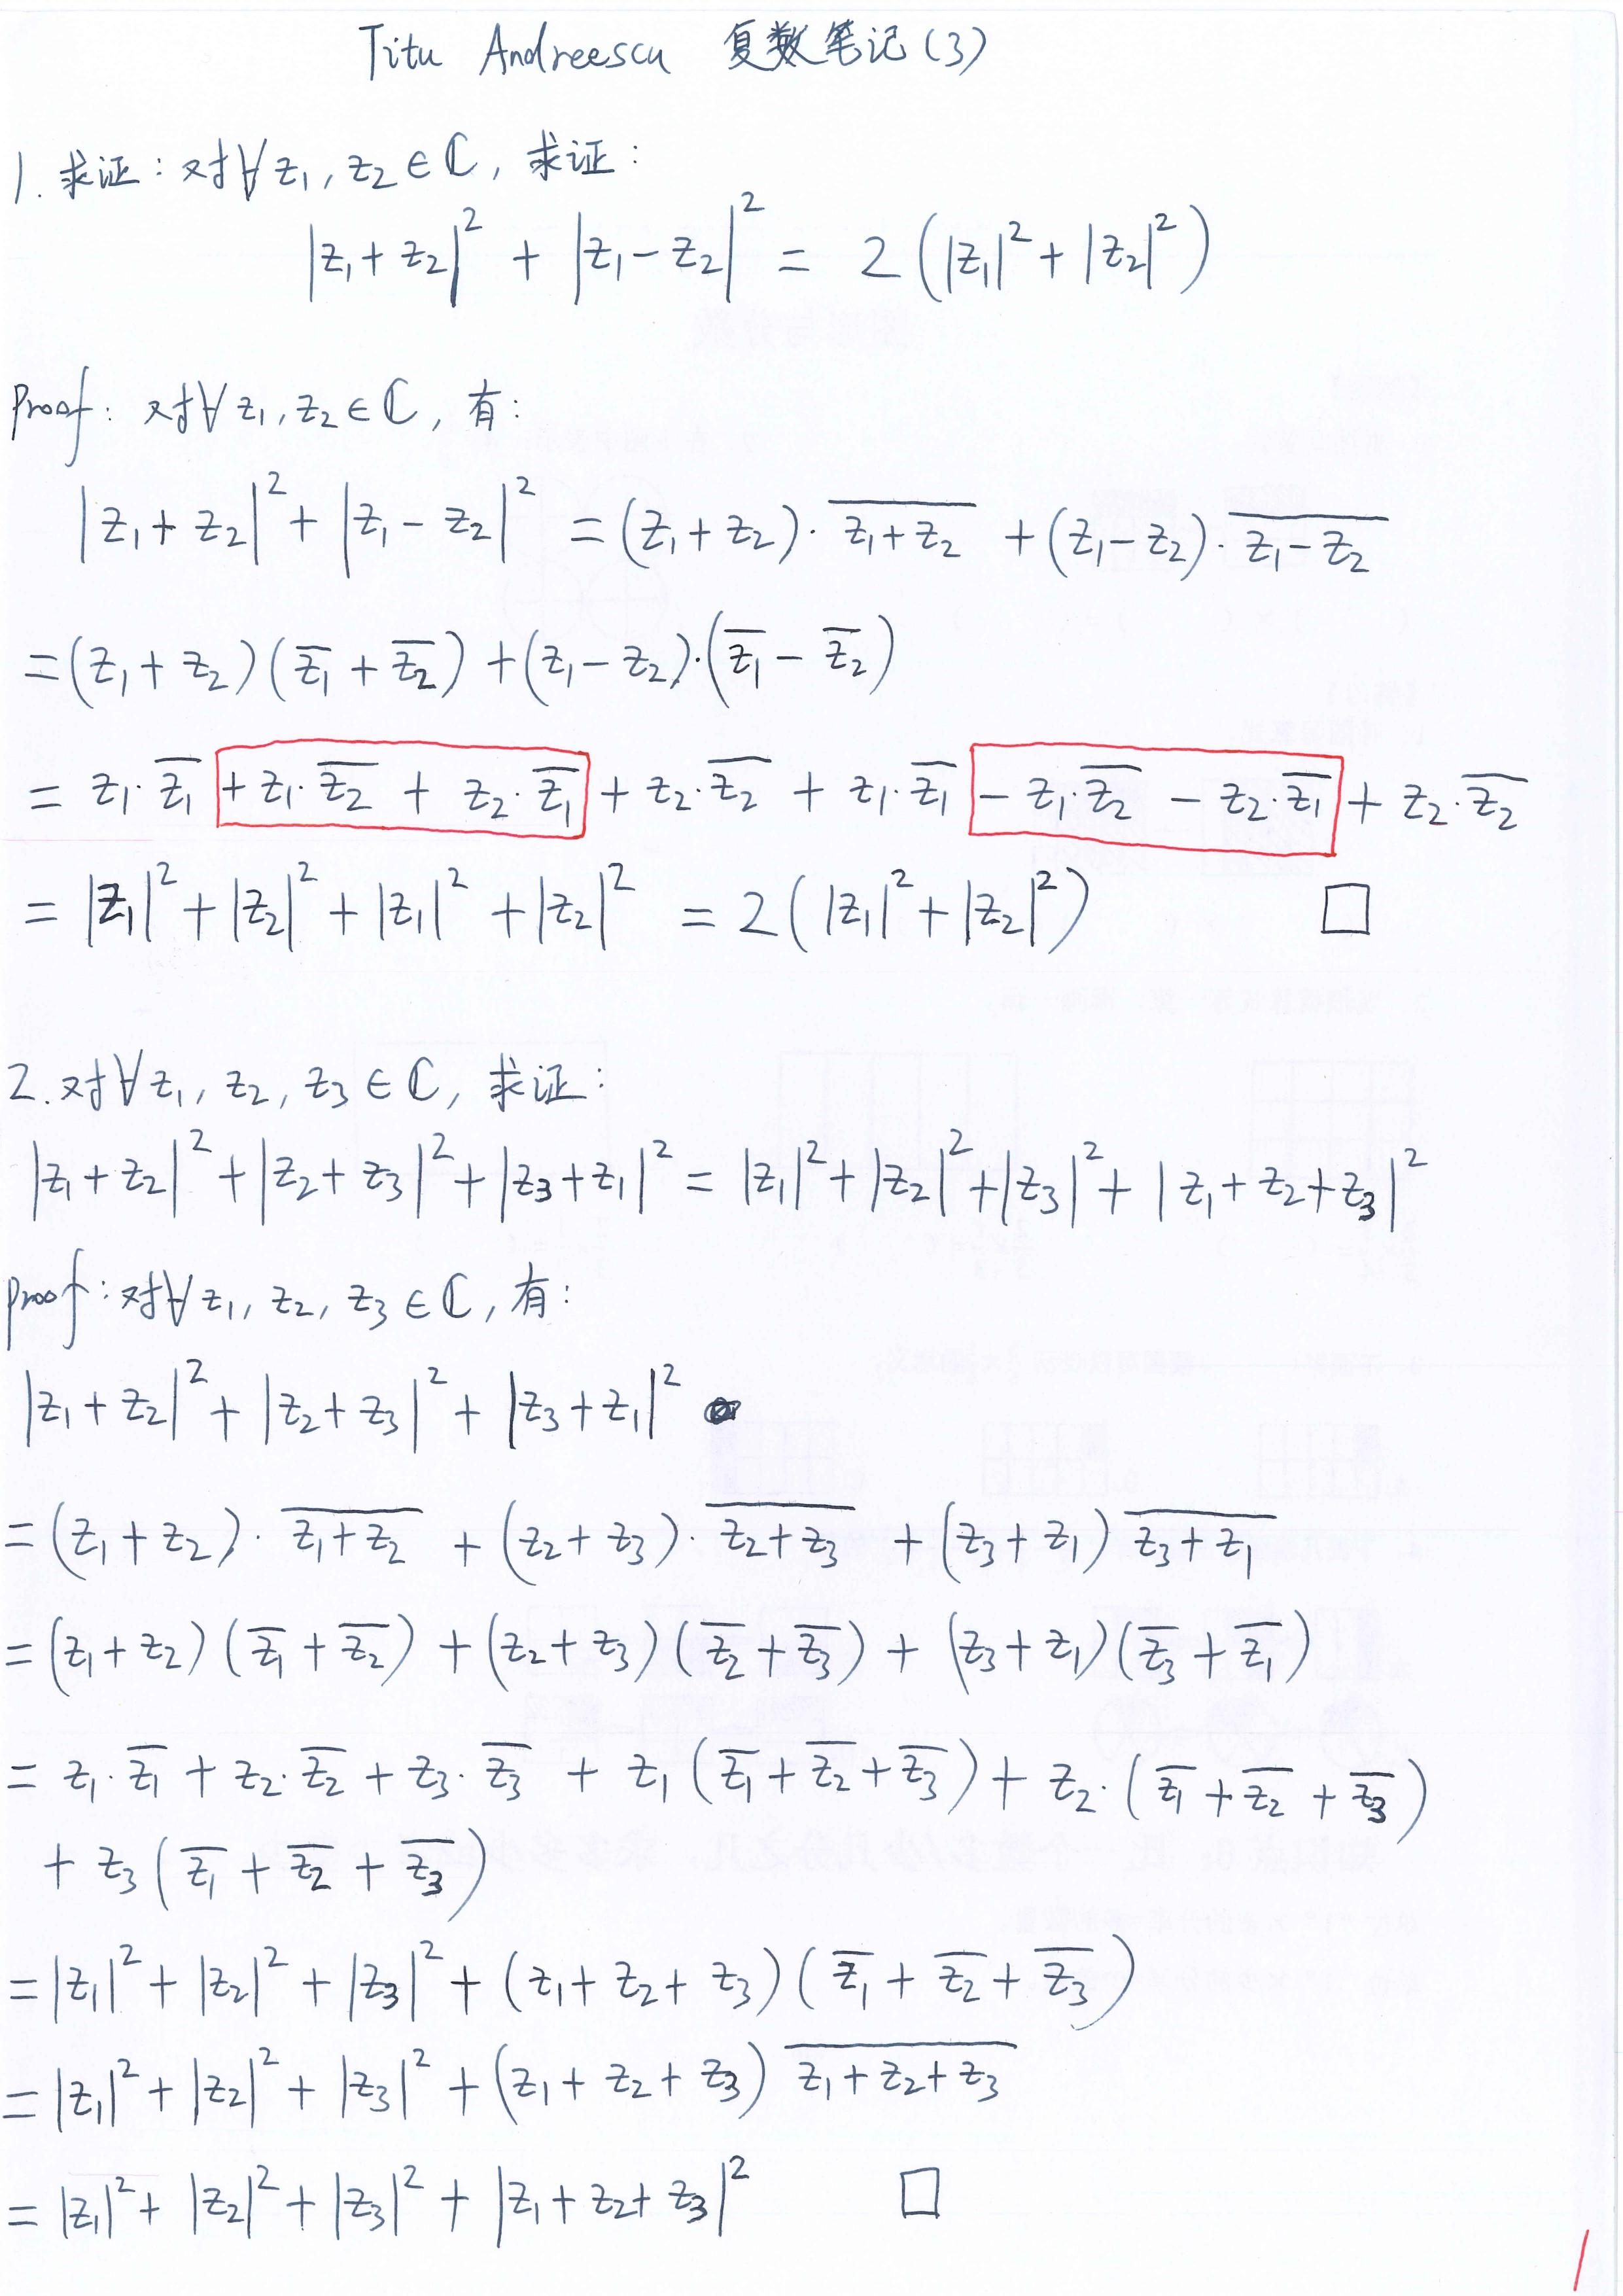 Titu Andreescu 复数笔记(3)
1. 求证: 对∀z₁, z₂ ∈ ℂ, 求证:
|z₁ + z₂|² + |z₁ − z₂|² = 2(|z₁|² + |z₂|²)
Proof: 对∀z₁, z₂ ∈ ℂ, 有:
|z₁ + z₂|² + |z₁ − z₂|² = (z₁ + z₂)·\overline{z₁ + z₂} + (z₁ − z₂)·\overline{z₁ − z₂}
= (z₁ + z₂)(\overline{z₁} + \overline{z₂}) + (z₁ − z₂)·(\overline{z₁} − \overline{z₂})
= z₁·\overline{z₁} + z₁·\overline{z₂} + z₂·\overline{z₁} + z₂·\overline{z₂} + z₁·\overline{z₁} − z₁·\overline{z₂} − z₂·\overline{z₁} + z₂·\overline{z₂}
= |z₁|² + |z₂|² + |z₁|² + |z₂|² = 2(|z₁|² + |z₂|²) □
2. 对∀z₁, z₂, z₃ ∈ ℂ, 求证:
|z₁ + z₂|² + |z₂ + z₃|² + |z₃ + z₁|² = |z₁|² + |z₂|² + |z₃|² + |z₁ + z₂ + z₃|²
Proof: 对∀z₁, z₂, z₃ ∈ ℂ, 有:
|z₁ + z₂|² + |z₂ + z₃|² + |z₃ + z₁|²
= (z₁ + z₂)·\overline{z₁ + z₂} + (z₂ + z₃)·\overline{z₂ + z₃} + (z₃ + z₁)\overline{z₃ + z₁}
= (z₁ + z₂)(\overline{z₁} + \overline{z₂}) + (z₂ + z₃)(\overline{z₂} + \overline{z₃}) + (z₃ + z₁)(\overline{z₃} + \overline{z₁})
= z₁·\overline{z₁} + z₂·\overline{z₂} + z₃·\overline{z₃} + z₁(\overline{z₁} + \overline{z₂} + \overline{z₃}) + z₂·(\overline{z₁} + \overline{z₂} + \overline{z₃})
+ z₃(\overline{z₁} + \overline{z₂} + \overline{z₃})
= |z₁|² + |z₂|² + |z₃|² + (z₁ + z₂ + z₃)(\overline{z₁} + \overline{z₂} + \overline{z₃})
= |z₁|² + |z₂|² + |z₃|² + (z₁ + z₂ + z₃)\overline{z₁ + z₂ + z₃}
= |z₁|² + |z₂|² + |z₃|² + |z₁ + z₂ + z₃|² □
1